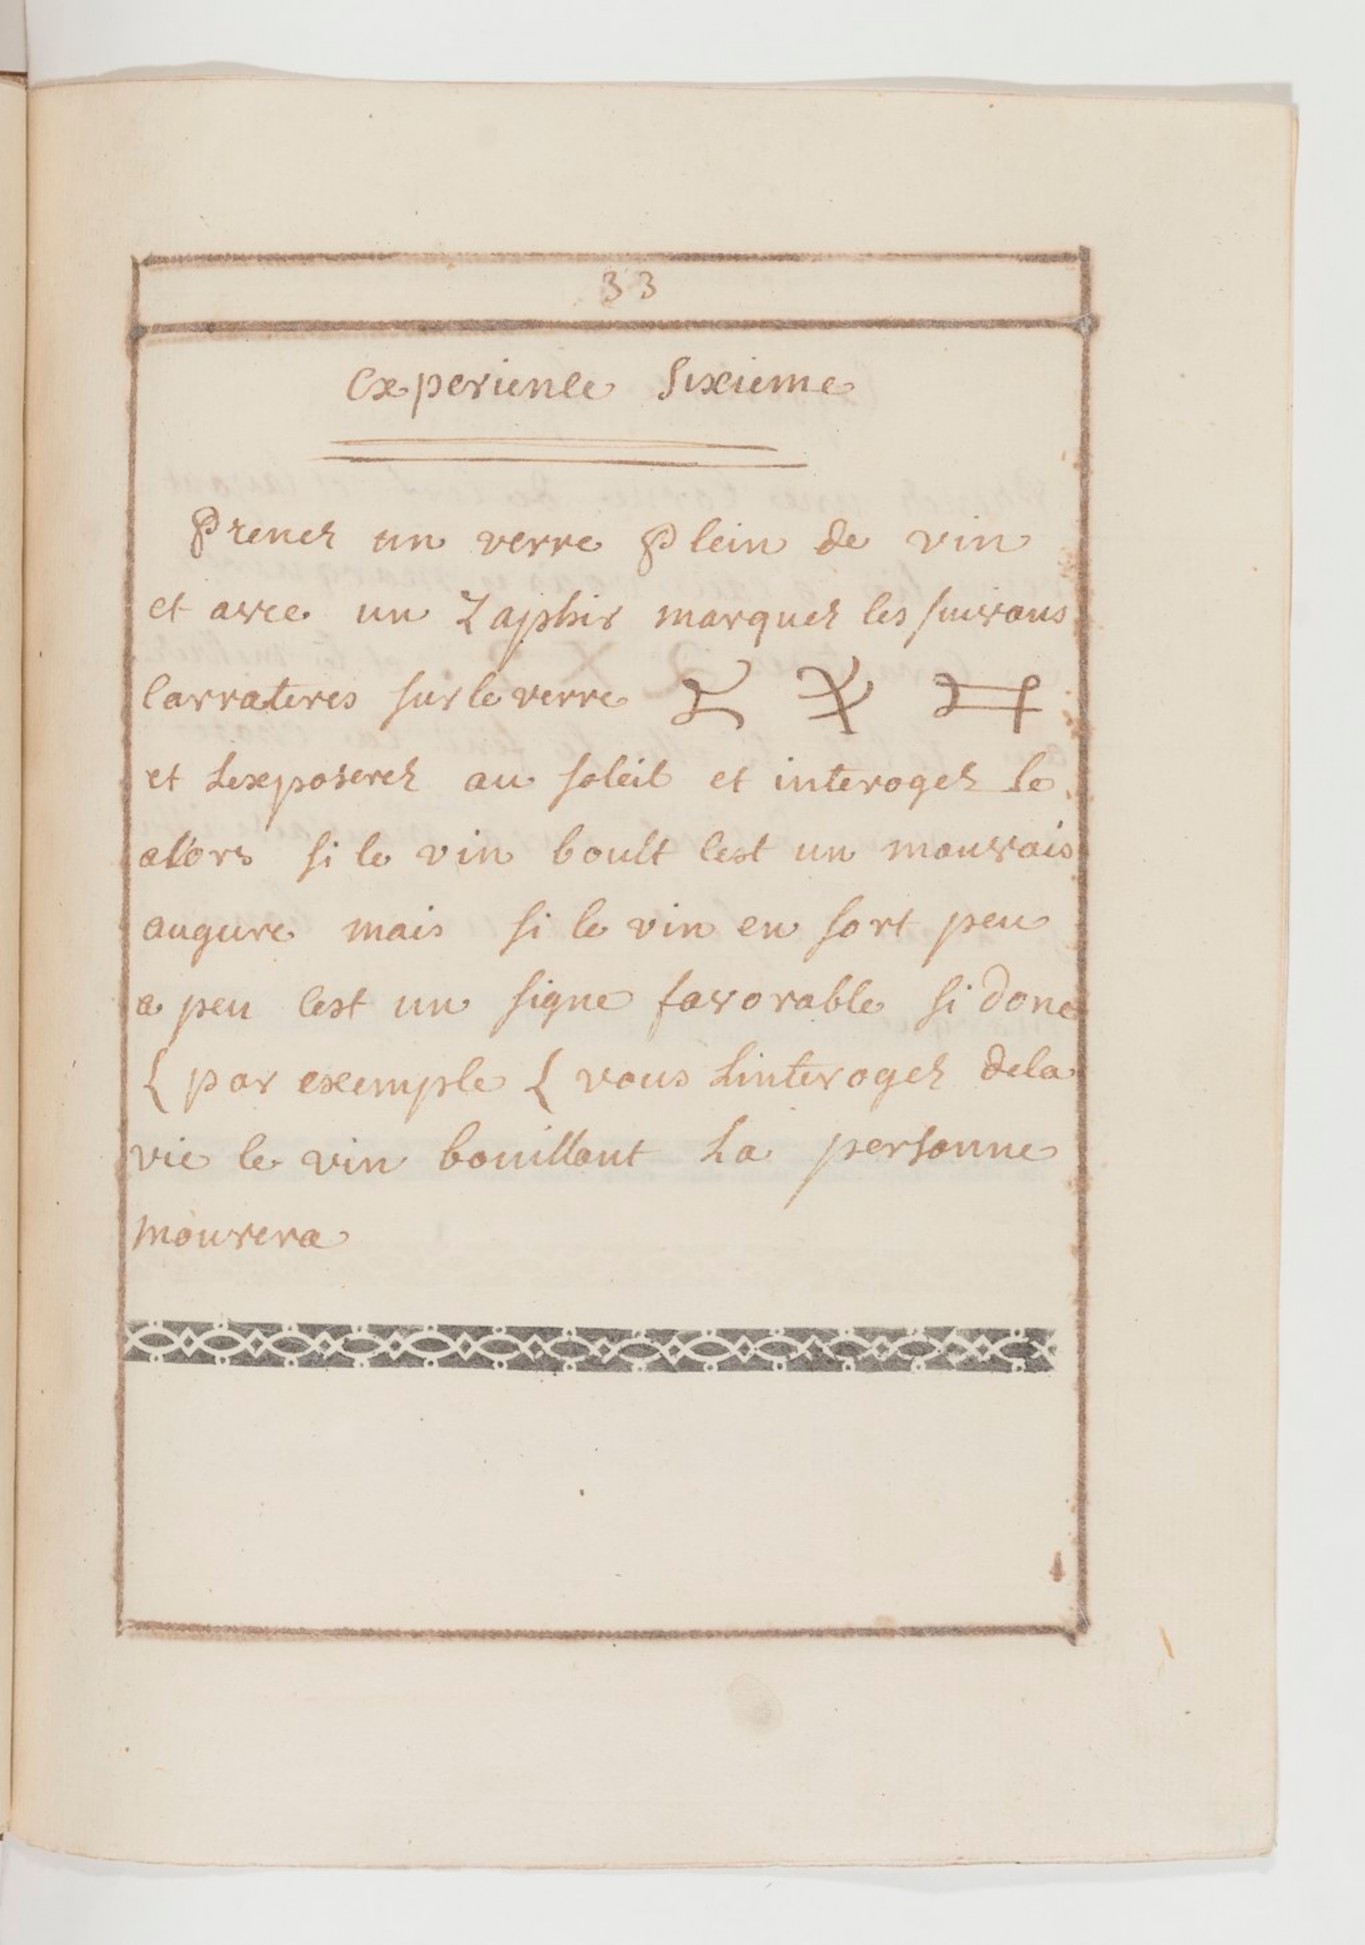 33
Experience Sixieme
Prenez un verre Plein de vin
et avec un Zaphir marquez les suivans
Carrateres sur le verre
et Lexposerez au soleil et interogez le
alors si le vin boult Cest un mauvais
augure mais si le vin en sort peu
a peu Cest un signe favorable si donc
{ par exemple { vous Linterogez dela
vie le vin bouillant La personne
mourera